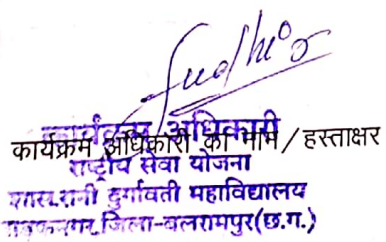 Sudhir
कार्यक्रम अधिकारी
कार्यक्रम अधिकारी का नाम / हस्ताक्षर
राष्ट्रीय सेवा योजना
शास.रानी दुर्गावती महाविद्यालय
वाड्रफनगर,जिला-बलरामपुर(छ.ग.)